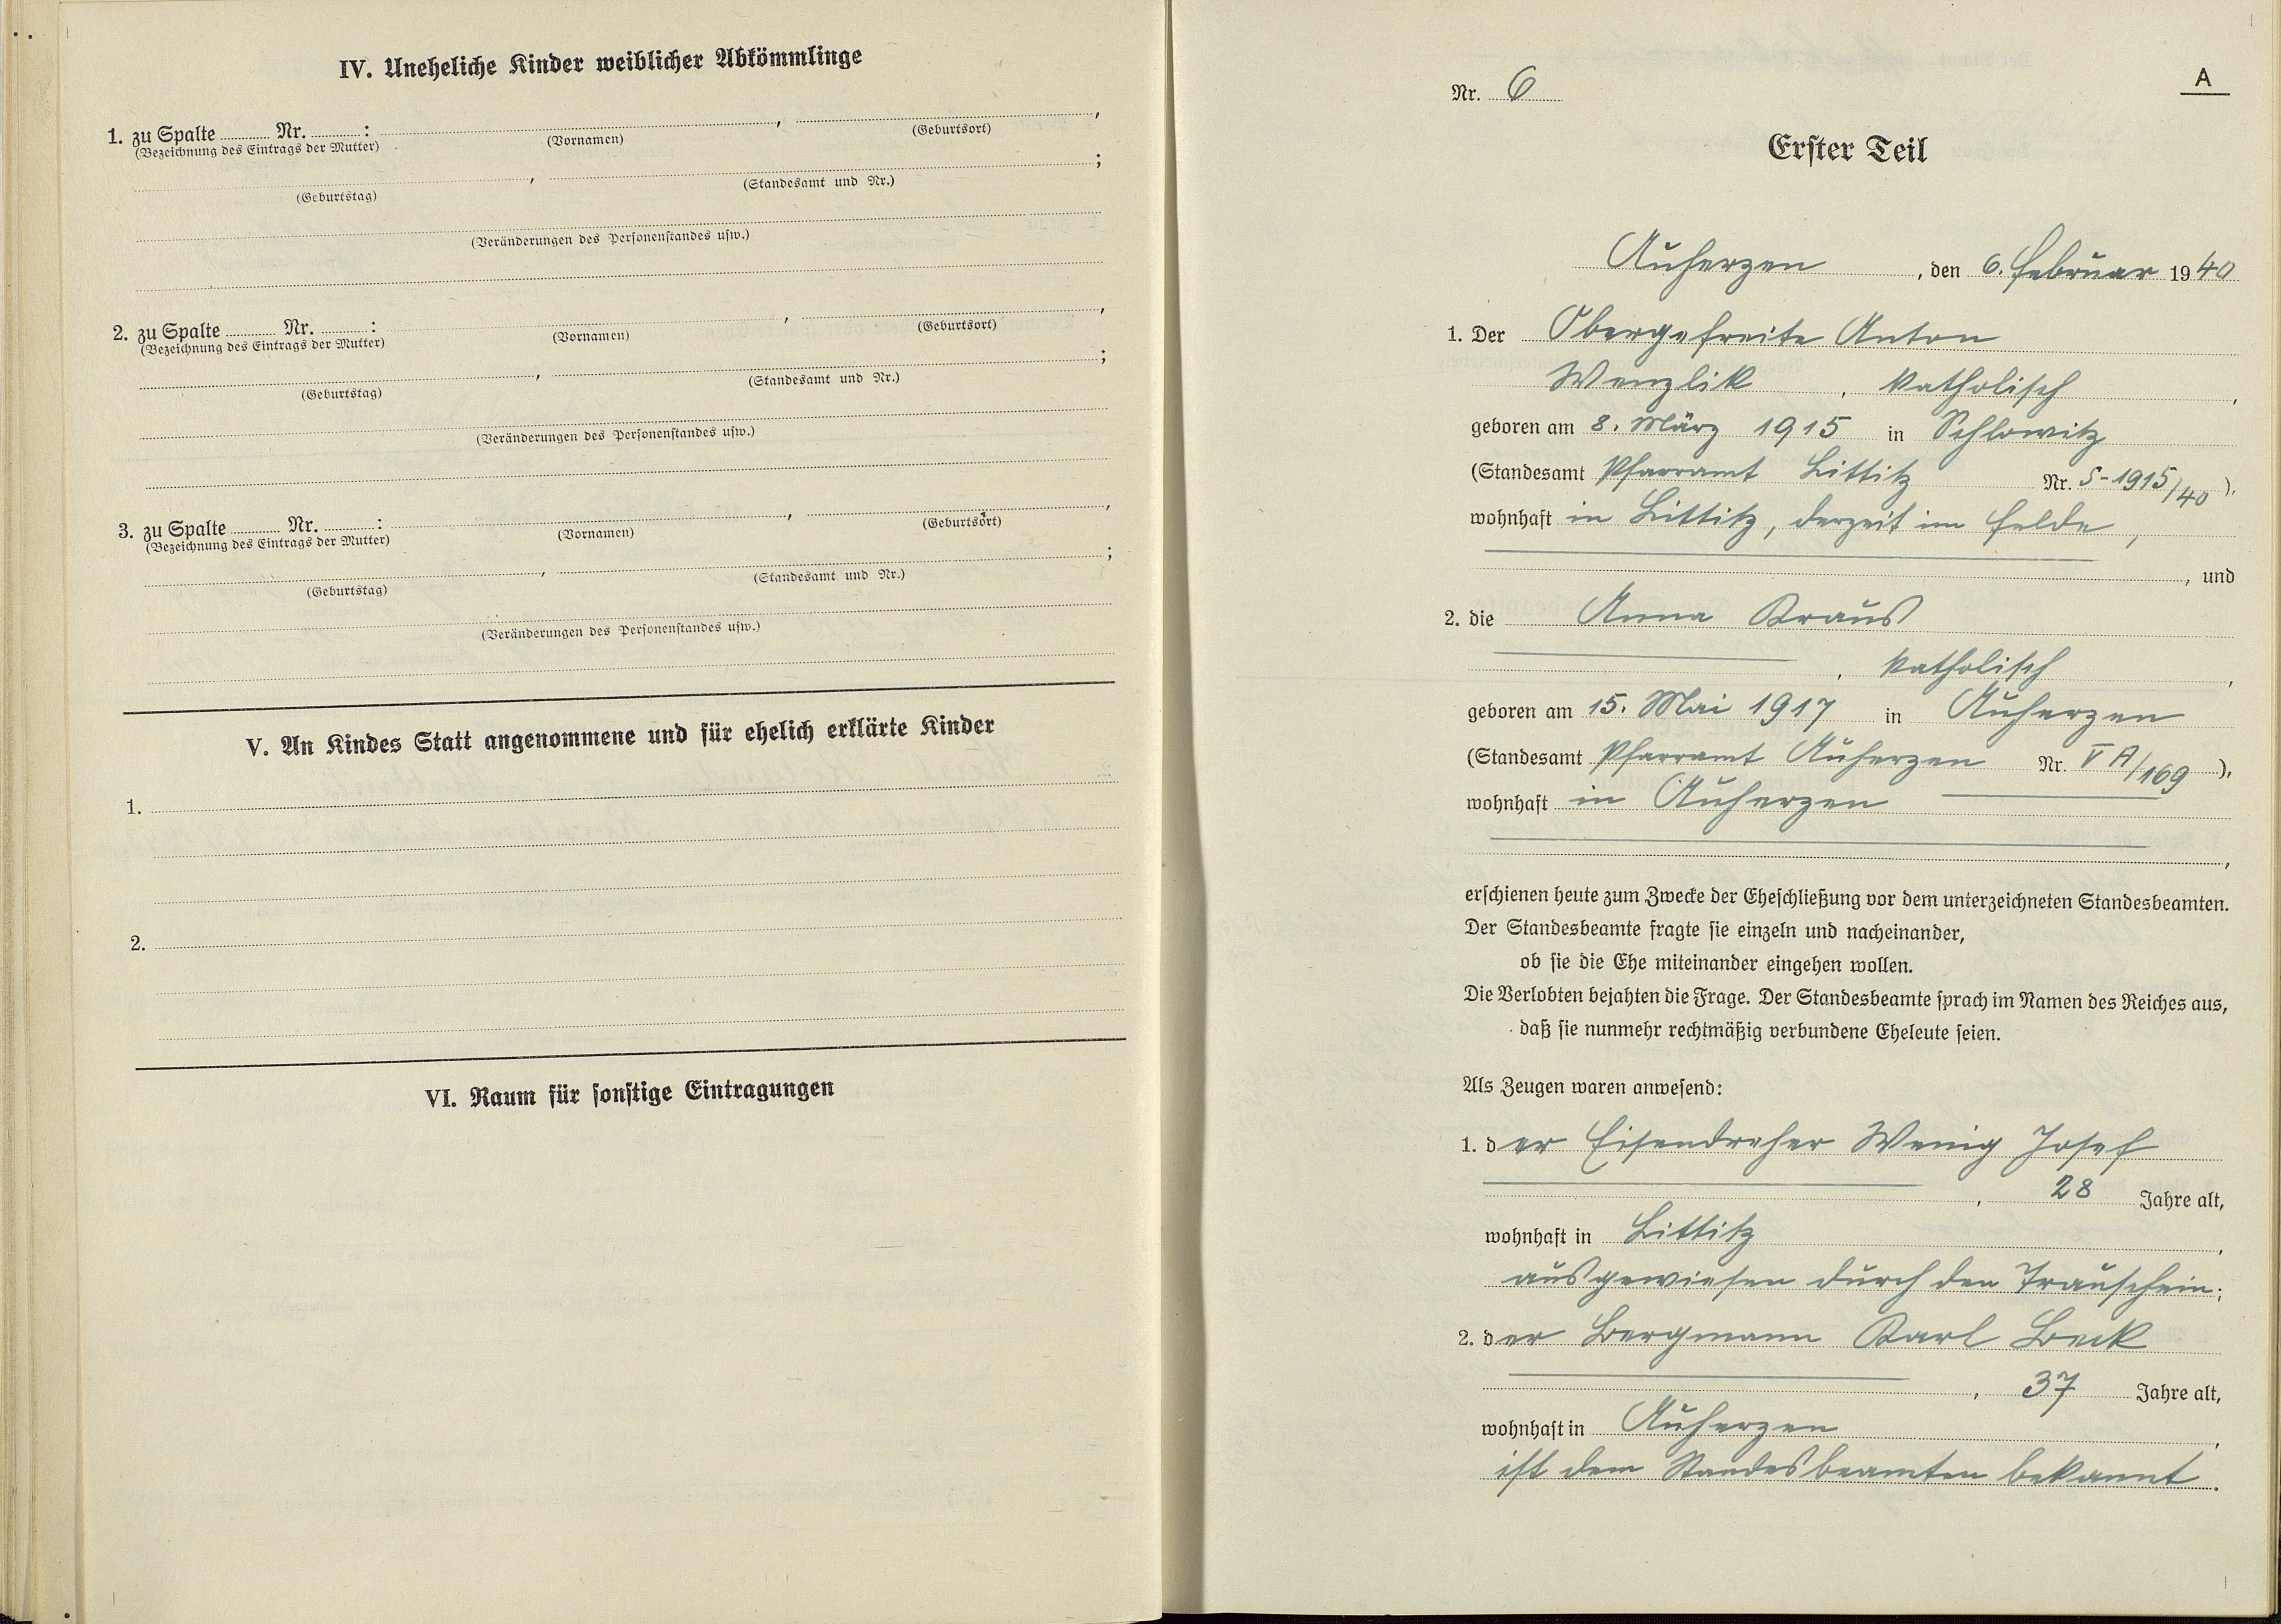 IV. Uneheliche Kinder weiblicher Abkömmlinge
1. zu Spalte ........ Nr. ........ : , ,
(Bezeichnung des Eintrags der Mutter) (Vornamen) (Geburtsort)
, ;
(Geburtstag) (Standesamt und Nr.)
(Veränderungen des Personenstandes usw.)
2. zu Spalte ........ Nr. ........ : , ,
(Bezeichnung des Eintrags der Mutter) (Vornamen) (Geburtsort)
, ;
(Geburtstag) (Standesamt und Nr.)
(Veränderungen des Personenstandes usw.)
3. zu Spalte ........ Nr. ........ : , ,
(Bezeichnung des Eintrags der Mutter) (Vornamen) (Geburtsort)
, ;
(Geburtstag) (Standesamt und Nr.)
(Veränderungen des Personenstandes usw.)
V. An Kindes Statt angenommene und für ehelich erklärte Kinder
1.
2.
VI. Raum für sonstige Eintragungen
A
Nr. 6
Erster Teil
Auherzen, den 6. Februar 1940
1. Der Obergefreite Anton
Wenzlik, katholisch,
geboren am 8. März 1915 in Schlowitz
(Standesamt Pfarramt Littitz Nr. 5-1915/40),
wohnhaft in Littitz, derzeit im Felde,
, und
2. die Anna Kraus
, katholisch,
geboren am 15. Mai 1917 in Auherzen
(Standesamt Pfarramt Auherzen Nr. V A/169),
wohnhaft in Auherzen
,
erschienen heute zum Zwecke der Eheschließung vor dem unterzeichneten Standesbeamten.
Der Standesbeamte fragte sie einzeln und nacheinander,
ob sie die Ehe miteinander eingehen wollen.
Die Verlobten bejahten die Frage. Der Standesbeamte sprach im Namen des Reiches aus,
daß sie nunmehr rechtmäßig verbundene Eheleute seien.
Als Zeugen waren anwesend:
1. der Eisendreher Wenig Josef
, 28 Jahre alt,
wohnhaft in Littitz,
ausgewiesen durch den Trauschein;
2. der Bergmann Karl Beck
, 37 Jahre alt,
wohnhaft in Auherzen,
ist dem Standesbeamten bekannt.